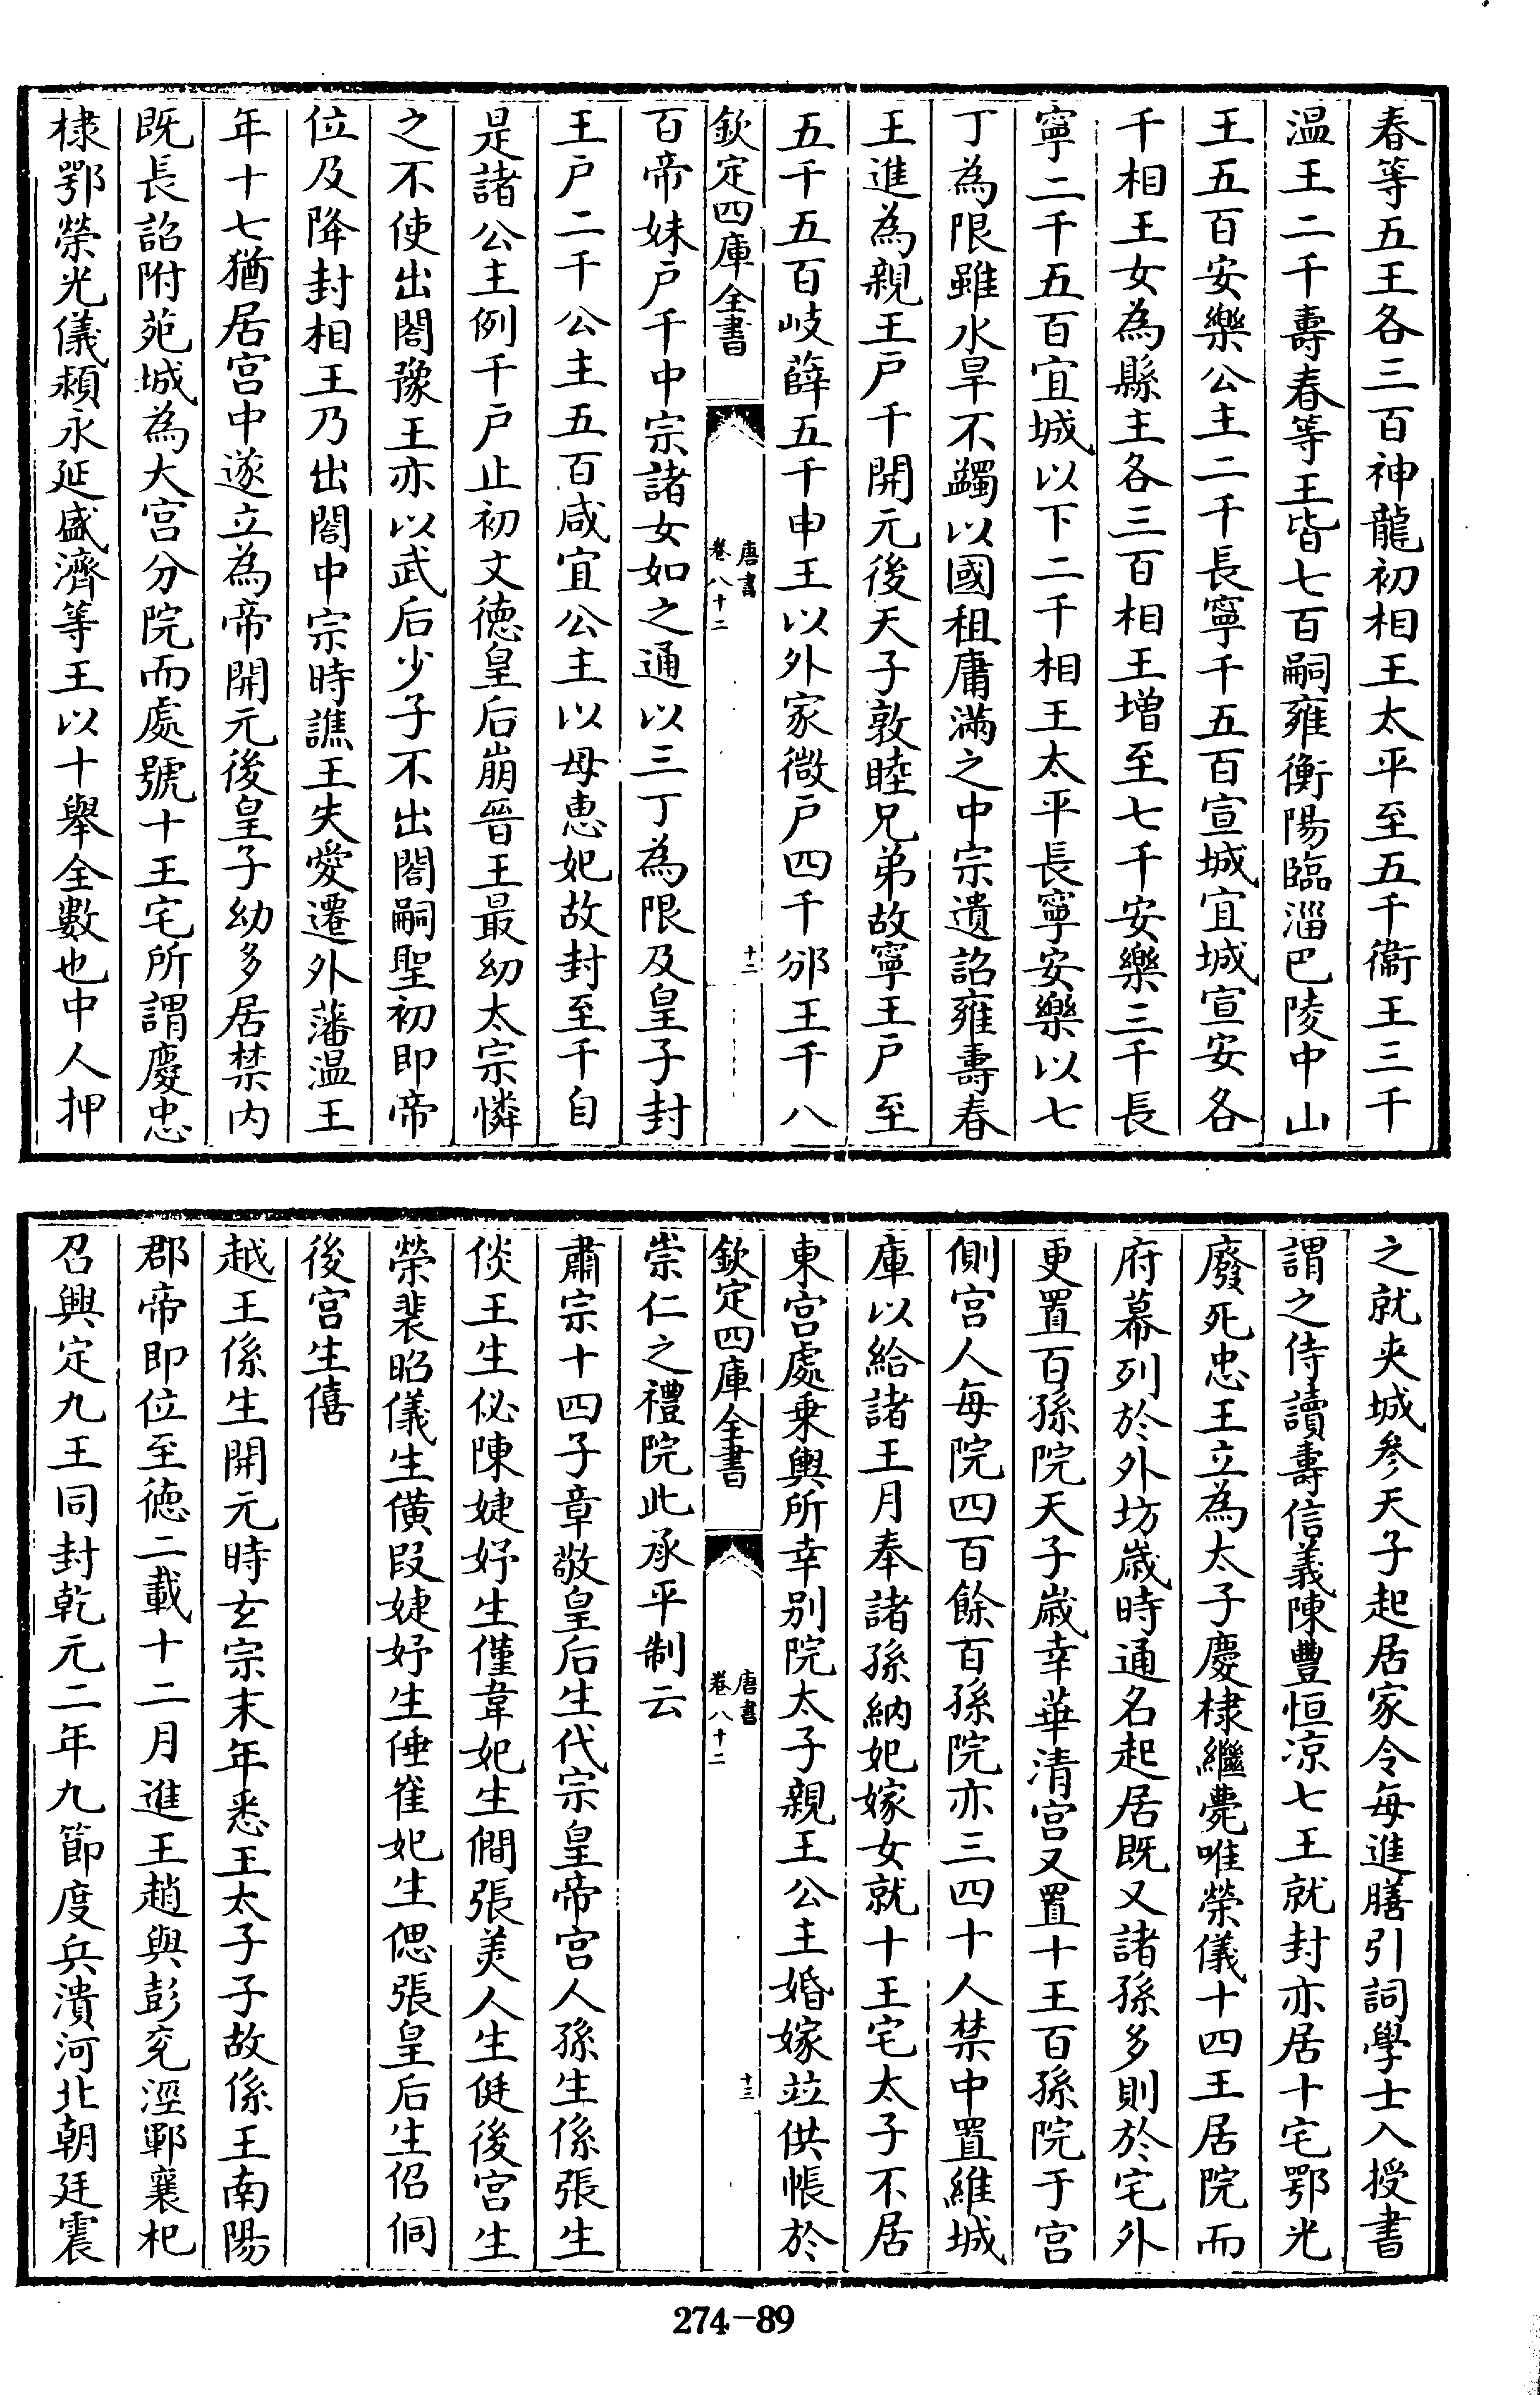 春等五王各三百神龍初相王太平至五千衞王三千
温王二千壽春等王皆七百嗣雍衡陽臨淄巴陵中山
王五百安樂公主二千長寧千五百宣城宜城宣安各
千相王女為縣主各三百相王增至七千安樂三千長
寧二千五百宜城以下二千相王太平長寧安樂以七
丁為限雖水旱不蠲以國租庸滿之中宗遺詔雍壽春
王進為親王戶千開元後天子敦睦兄弟故寧王戶至
五千五百岐薛五千申王以外家微戶四千邠王千八
欽定四庫全書
唐書
卷八十二
十二
百帝妹戶千中宗諸女如之通以三丁為限及皇子封
王戶二千公主五百咸宜公主以母惠妃故封至千自
是諸公主例千戶止初文德皇后崩晉王最幼太宗憐
之不使出閤豫王亦以武后少子不出閤嗣聖初即帝
位及降封相王乃出閤中宗時譙王失愛遷外藩温王
年十七猶居宮中遂立為帝開元後皇子幼多居禁內
既長詔附苑城為大宮分院而處號十王宅所謂慶忠
棣鄂榮光儀潁永延盛濟等王以十舉全數也中人押
之就夾城參天子起居家令每進膳引詞學士入授書
謂之侍讀壽信義陳豐恒凉七王就封亦居十宅鄂光
廢死忠王立為太子慶棣繼薨唯榮儀十四王居院而
府幕列於外坊歲時通名起居既又諸孫多則於宅外
更置百孫院天子歲幸華清宮又置十王百孫院于宮
側宮人每院四百餘百孫院亦三四十人禁中置維城
庫以給諸王月奉諸孫納妃嫁女就十王宅太子不居
東宮處乗輿所幸別院太子親王公主婚嫁竝供帳於
欽定四庫全書
唐書
卷八十二
十三
崇仁之禮院此承平制云
肅宗十四子章敬皇后生代宗皇帝宮人孫生係張生
倓王生佖陳婕妤生僅韋妃生僩張美人生侹後宮生
榮裴昭儀生僙段婕妤生倕崔妃生偲張皇后生佋侗
後宮生僖
越王係生開元時玄宗末年悉王太子子故係王南陽
郡帝即位至德二載十二月進王趙與彭兗涇鄆襄杞
召興定九王同封乾元二年九節度兵潰河北朝廷震
274-89